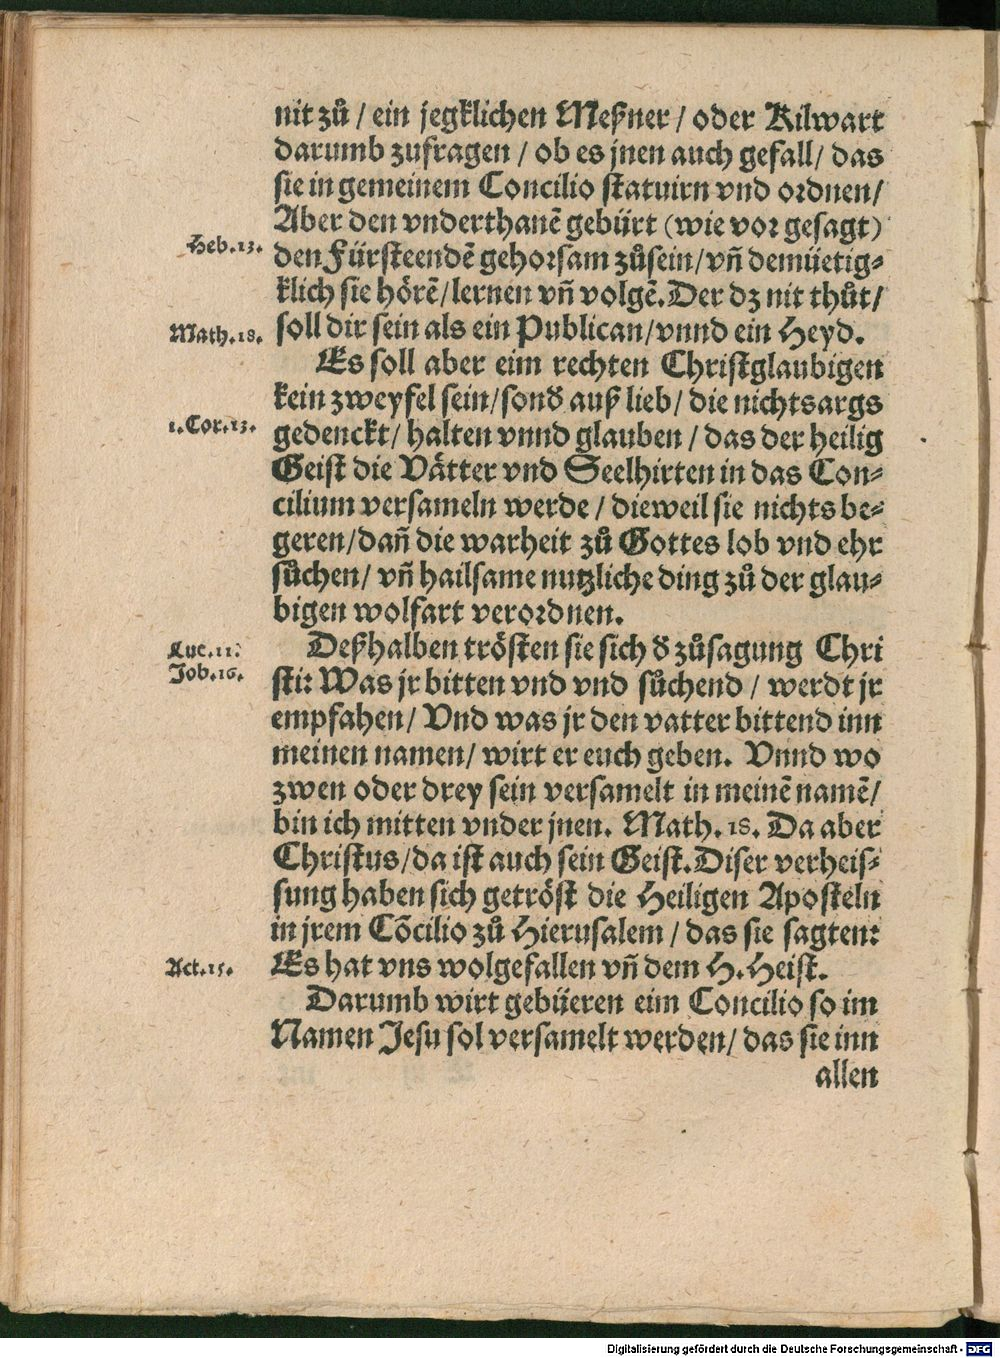 nit zů / ein jegklichen Meßner / oder Kilwart
darumb zufragen / ob es jnen auch gefall / das
sie in gemeinem Concilio statuirn vnd ordnen /
Aber den vnderthanẽ gebürt (wie vor gesagt)
Heb. 13.
den Fürsteendẽ gehorsam zůsein / vñ demüetig⸗
klich sie hörẽ / lernen vñ volgẽ. Der dz nit thůt /
Math. 18.
soll dir sein als ein Publican / vnnd ein Heyd.
Es soll aber eim rechten Christglaubigen
kein zweyfel sein / sonđ auß lieb / die nichts args
1. Cor. 13.
gedenckt / halten vnnd glauben / das der heilig
Geist die Vätter vnd Seelhirten in das Con⸗
cilium versameln werde / dieweil sie nichts be⸗
geren / dañ die warheit zů Gottes lob vnd ehr
sůchen / vñ hailsame nutzliche ding zů der glau⸗
bigen wolfart verordnen.
Luc. 11:
Deßhalben trösten sie sich đ zůsagung Chri
Joh. 16.
sti: Was jr bitten vnd vnd sůchend / werdt jr
empfahen / Vnd was jr den vatter bittend inn
meinen namen / wirt er euch geben. Vnnd wo
zwen oder drey sein versamelt in meinẽ namẽ /
bin ich mitten vnder jnen. Math. 18. Da aber
Christus / da ist auch sein Geist. Diser verheis⸗
sung haben sich getröst die Heiligen Aposteln
in jrem Cõcilio zů Hierusalem / das sie sagten:
Act. 15.
Es hat vns wolgefallen vñ dem H. Heist.
Darumb wirt gebüeren eim Concilio so im
Namen Jesu sol versamelt werden / das sie inn
allen
Digitalisierung gefördert durch die Deutsche Forschungsgemeinschaft - DFG